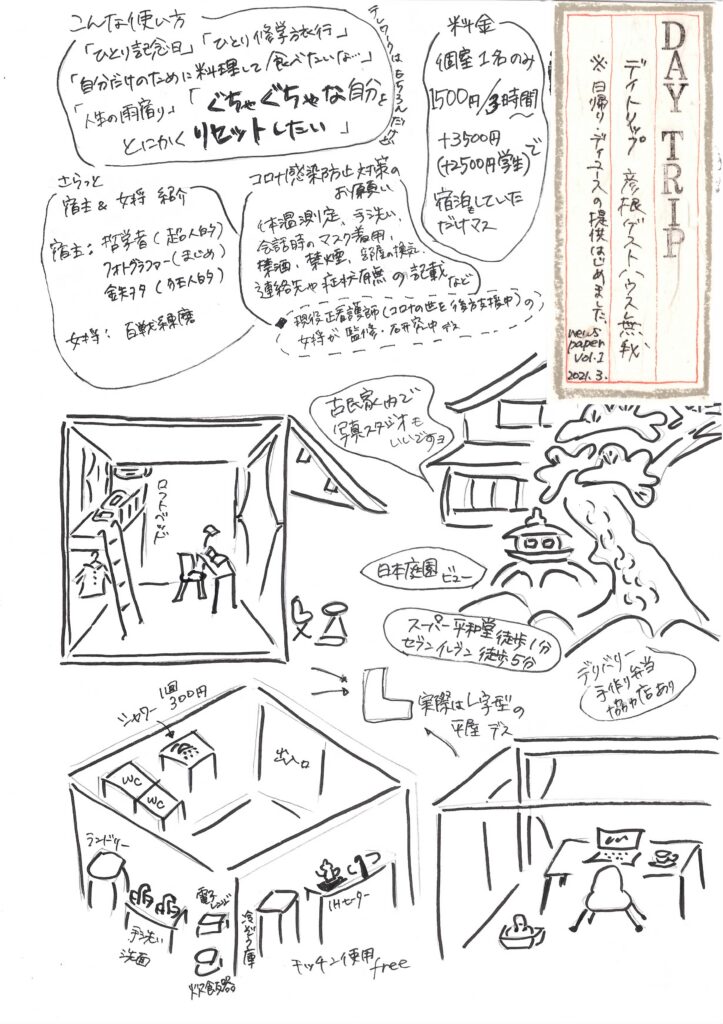 DAY TRIP
デイトリップ 彦根ゲストハウス無我
※日帰りデイユースの提供はじめました。
news
paper
vol.1
2021.3.
料金
個室1名のみ
1500円/3時間〜
+3500円
(+2500円学生)で
宿泊もしていた
だけマス
こんな使い方
「ひとり記念日」「ひとり修学旅行」
「自分だけのために料理して食べたいな…」
「人生の雨宿り」「ぐちゃぐちゃな自分を
とにかくリセットしたい」
テレワークはもちろんだけど
コロナ感染防止対策の
お願い
体温測定、手洗い、
会話時のマスク着用、
禁酒、禁煙、部屋の換気、
連絡先や症状有無の記載など
現役正看護師(コロナの世を後方支援中)の
女将が監修・研究中デス
さらっと
宿主&女将 紹介
宿主:哲学者(超人的)
フォトグラファー(まじめ)
鉄ヲタ
女将:百戦錬磨
古民家内で
写真スタジオも
いいですョ
ロフトベッド
日本庭園
ビュー
スーパー平和堂徒歩1分
セブンイレブン徒歩5分
デリバリー
手作り弁当
協力店あり
実際はL字型の
平屋デス
シャワー
1回
300円
出入口
WC
WC
ランドリー
手洗い
洗面
電子レンジ
炊飯器
冷ぞう庫
IHヒーター
キッチン使用
free